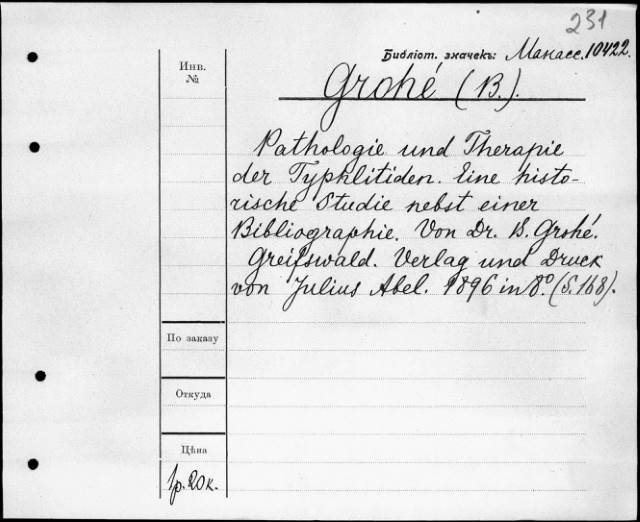 231
Библіот. значекъ: Манасс. 10422.
Инв.
№
Grohé (B.).
Pathologie und Therapie
der Typhlitiden. Eine histo-
rische Studie nebst einer
Bibliographie. Von Dr. B. Grohé.
Greifswald. Verlag und Druck
von Julius Abel. 1896 in 8º. (S. 168).
По заказу
Откуда
Цѣна
1р. 20к.